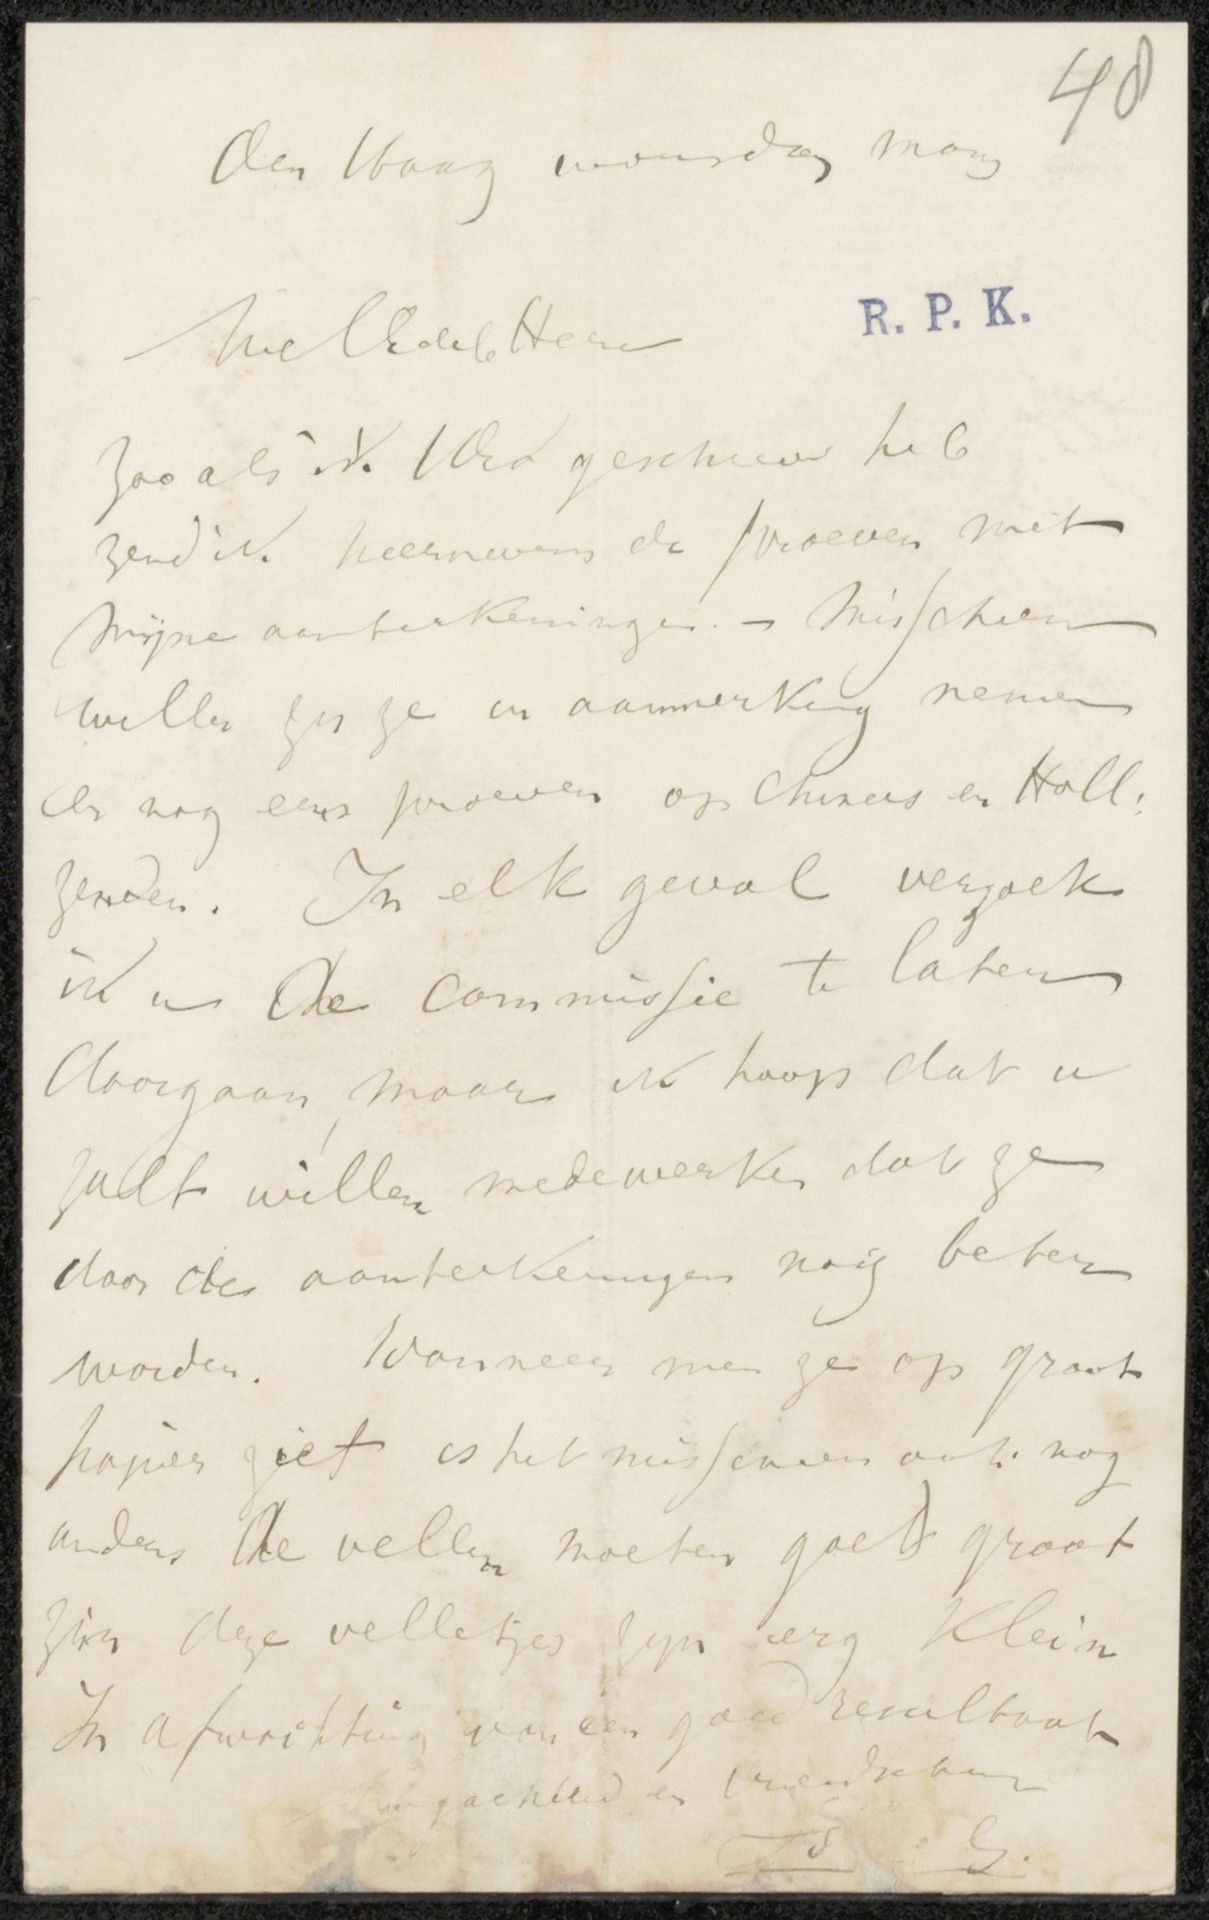 48
Den Haag woensdag morg
R. P. K.
WelEdele Heer
Zooals ik UEd geschreven heb
zend ik hiernevens de proeven met
mijne aanteekeningen. - Misschien
willen zij ze in aanmerking nemen
en nog eens proeven op Chinees en Holl:
zenden. In elk geval verzoek
ik u de commissie te laten
doorgaan, maar ik hoop dat u
zult willen medewerken dat ze
door de aanteekeningen nog beter
worden. Wanneer men ze op groot
papier ziet is het misschien ook nog
anders De vellen moeten goed groot
zijn deze velletjes zijn erg klein
In afwachting van een goed resultaat
hoogachtend en vriendschap